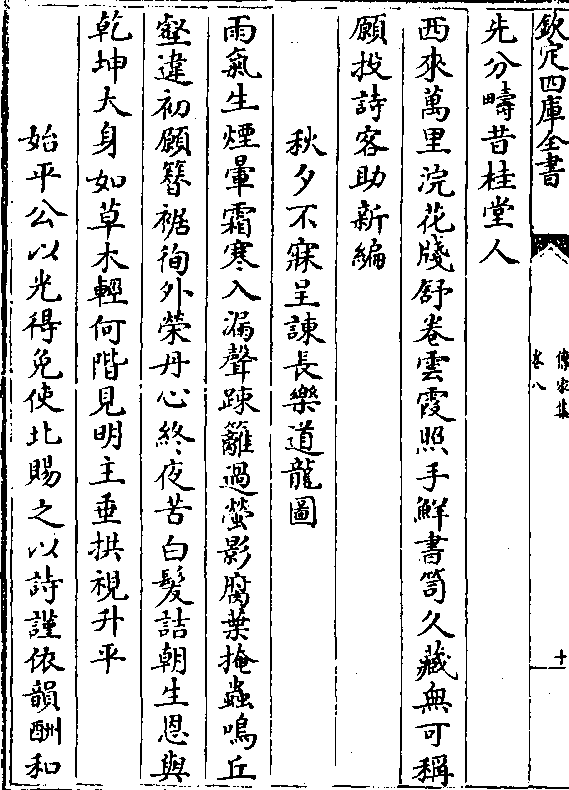 欽定四庫全書
傳家集
卷八
十
先分疇昔桂堂人
西來萬里浣花牋舒卷雲霞照手鮮書笥久藏無可稱
願投詩客助新編
秋夕不寐呈諫長樂道龍圖
雨氣生煙暈霜寒入漏聲踈籬過螢影腐葉掩蟲鳴丘
壑違初願簪裾徇外榮丹心終夜苦白髮詰朝生恩與
乾坤大身如草木輕何階見明主垂拱視升平
始平公以光得免使北賜之以詩謹依韻酬和